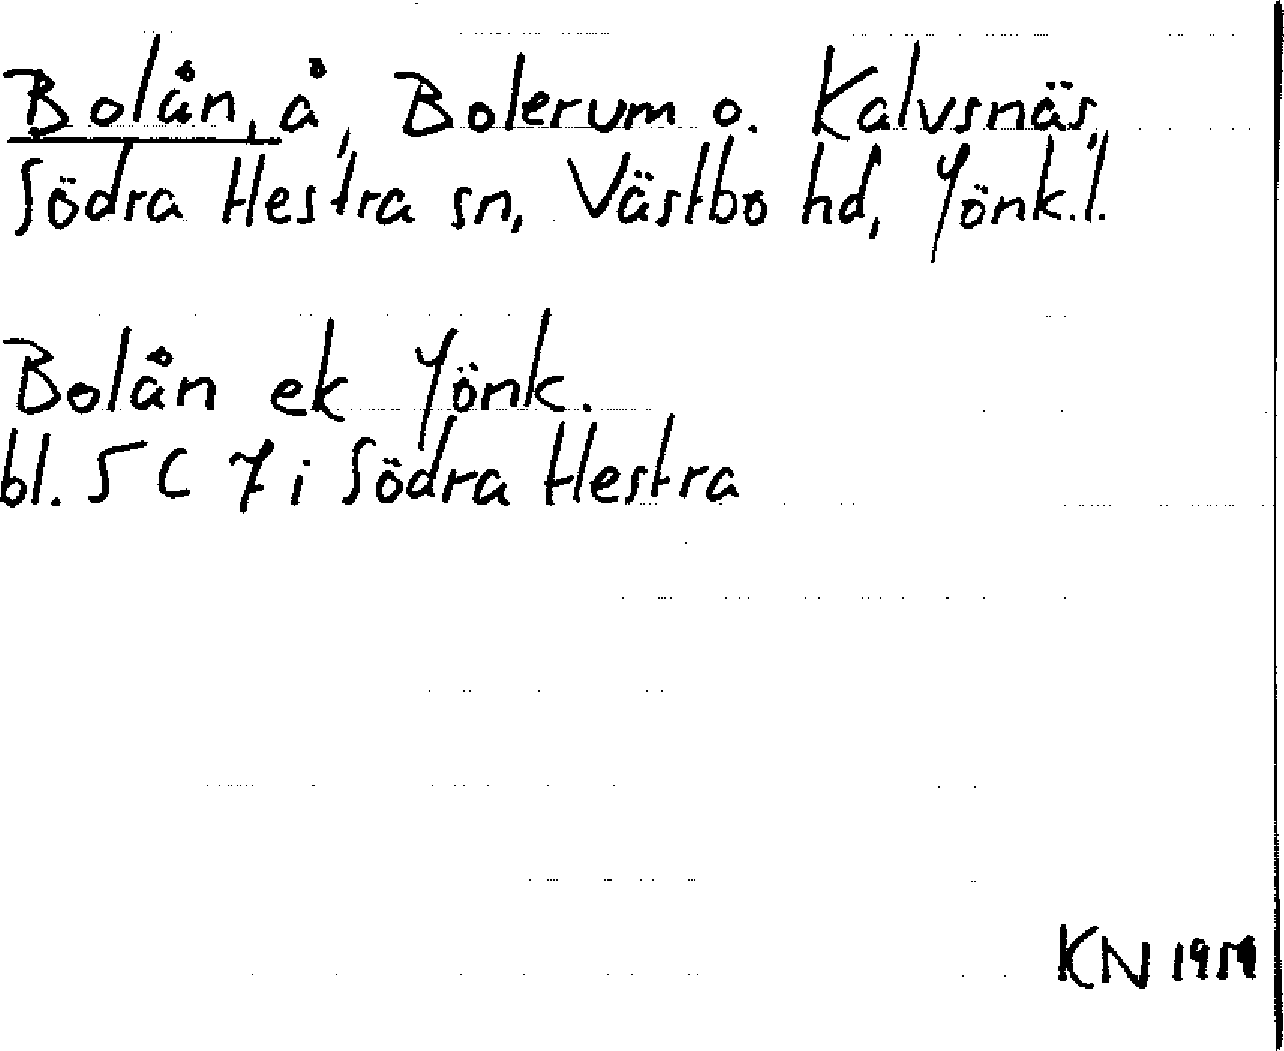 Bolån, å, Bolerum o. Kalvsnäs,
Södra Hestra sn, Västbo hd, Jönk.l.
Bolån ek Jönk.
bl. 5 C 7 i Södra Hestra
KN 1959